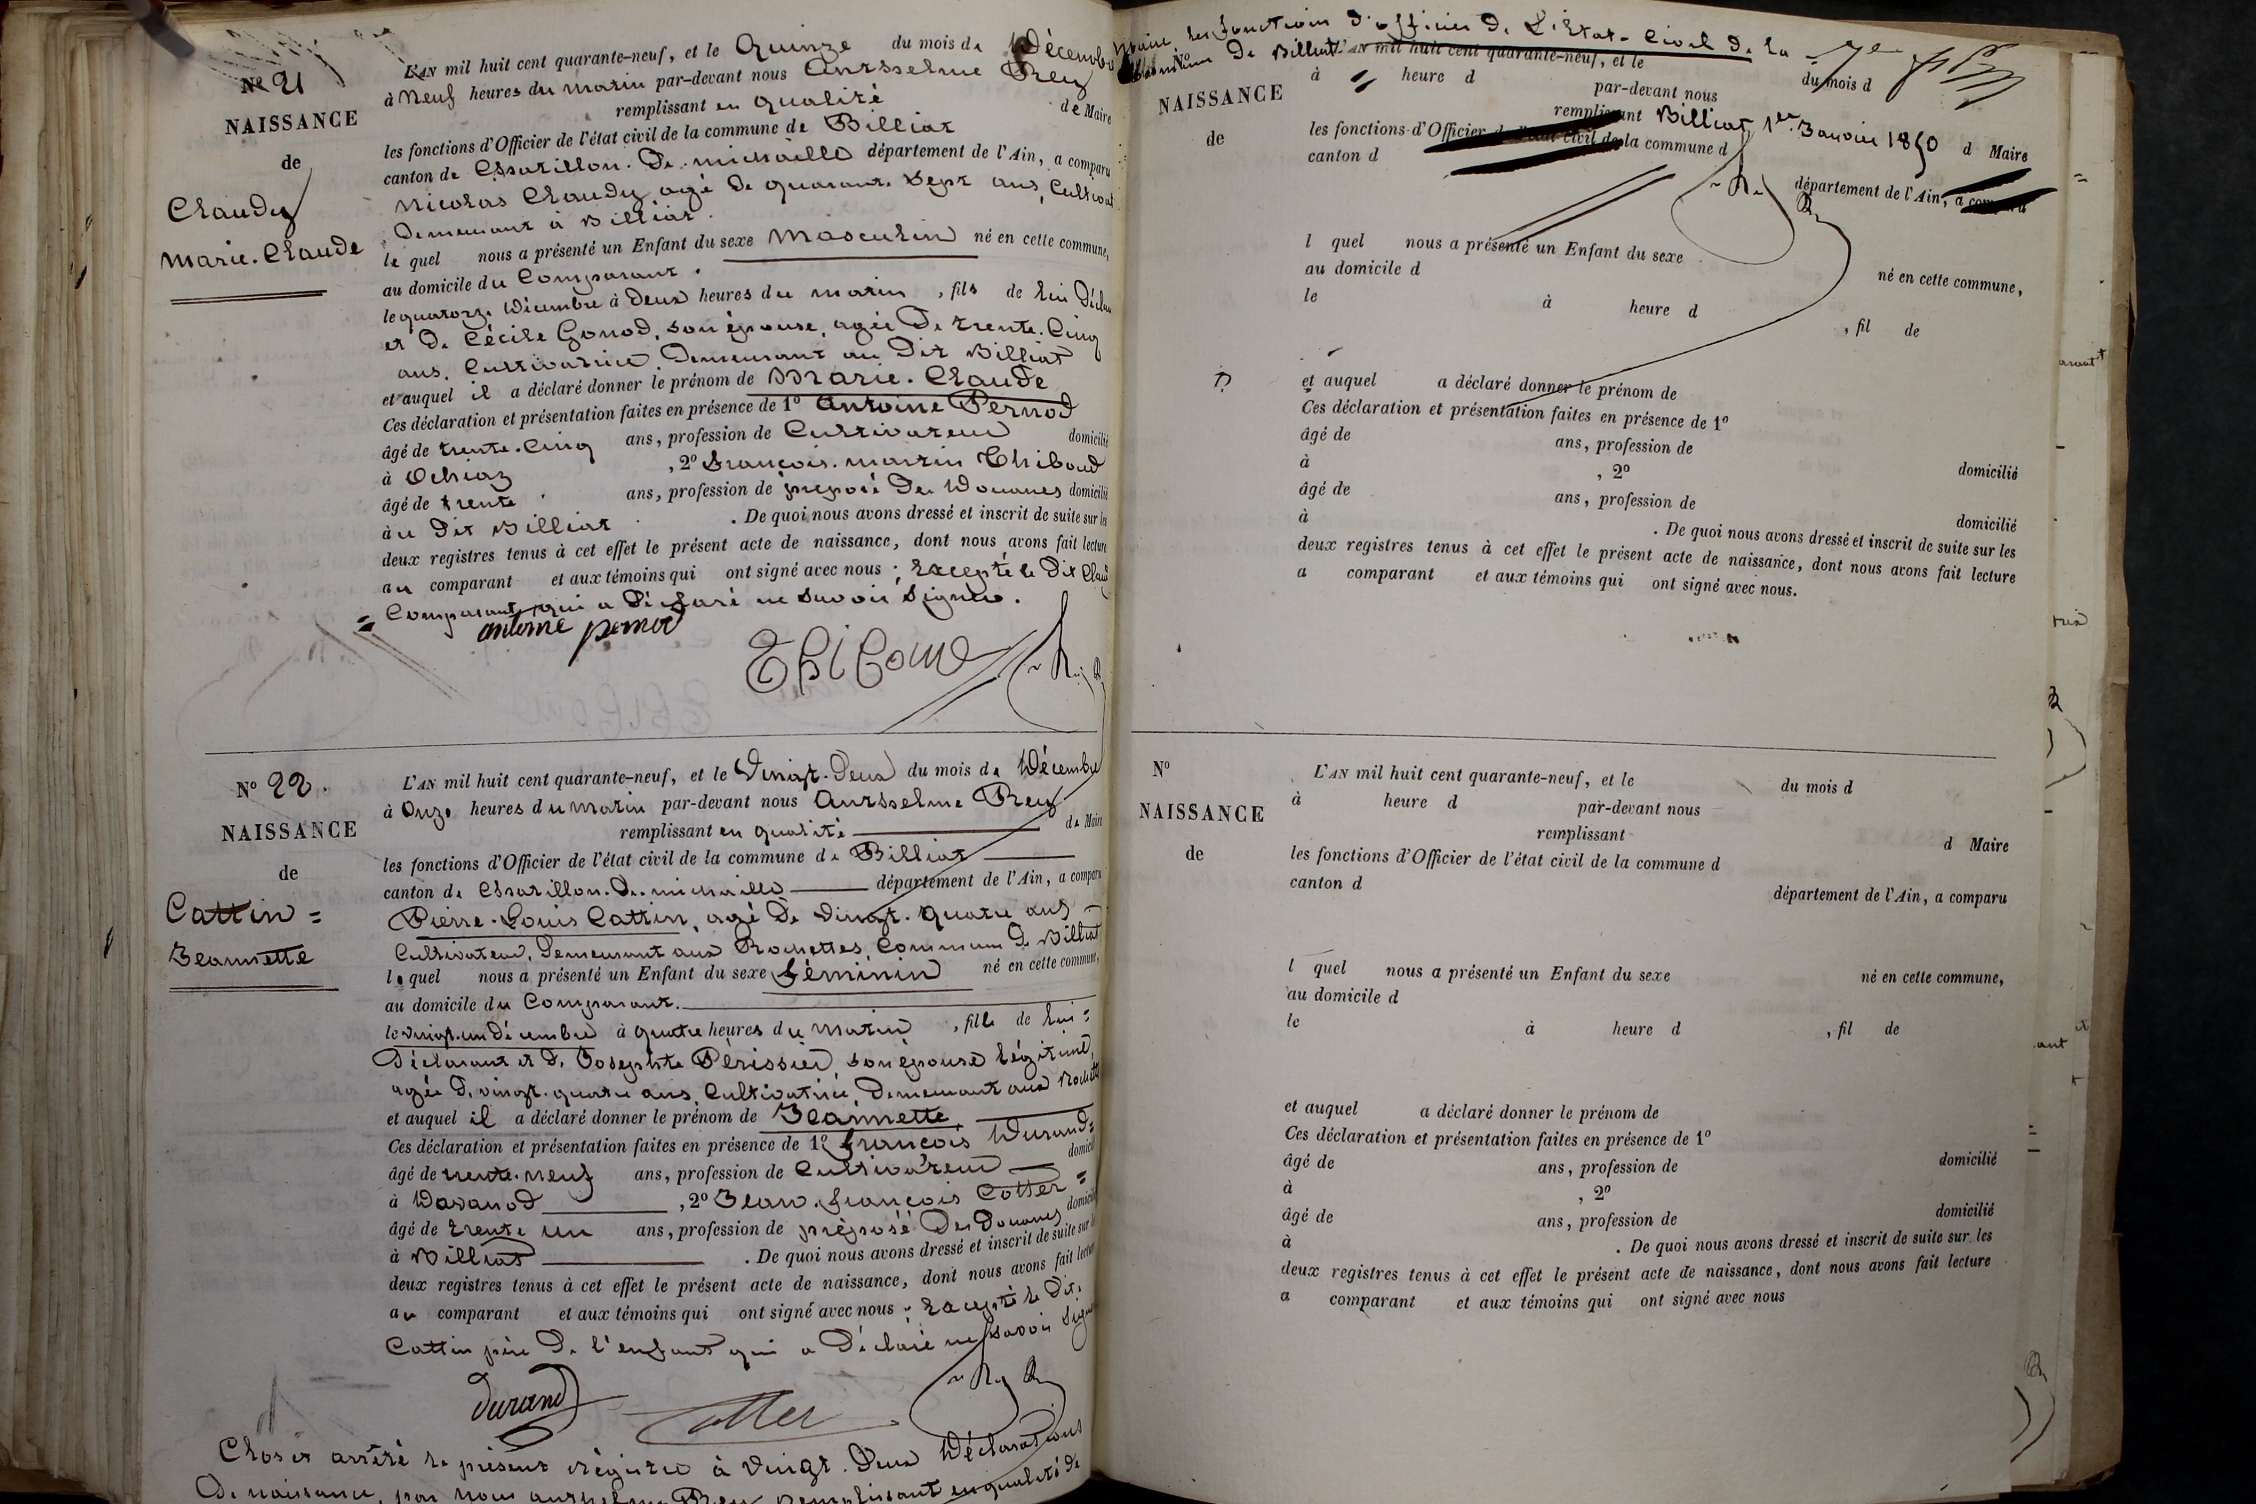 Nº 21
NAISSANCE
de
Chaudy
Marie-Claude
L'AN mil huit cent quarante-neuf, et le Quinze du mois de Décembre
à Neuf heures du matin par-devant nous Anthelme Rey
remplissant en qualité de Maire
les fonctions d'Officier de l'état civil de la commune de Billiat
canton de Chatillon-De-michaille département de l'Ain, a comparu
Nicolas Chaudy agé De quarante Sept ans, Cultivat
Demeurant à Billiat.
lequel nous a présenté un Enfant du sexe Masculin né en cette commune,
au domicile du Comparant.
le quatorze Décembre à Deux heures du matin, fils de lui Décla
et De Cécile Gonod, son épouse, agée De trente-Cinq
ans, Cultivatrice, Demeurant au Dit Billiat
et auquel il a déclaré donner le prénom de Marie-Claude
Ces déclaration et présentation faites en présence de 1º Antoine Pernod
âgé de trente-Cinq ans, profession de Cultivateur domicilié
à Ochiaz, 2º François-martin Thiboud
âgé de trente ans, profession de préposé Des Douanes domicilié
à au Dit Billiat. De quoi nous avons dressé et inscrit de suite sur les
deux registres tenus à cet effet le présent acte de naissance, dont nous avons fait lecture
au comparant et aux témoins qui ont signé avec nous; Excepté le Dit Chaudy
Comparant, qui a Déclaré ne Savoir Signer.
antoine pernod
Thiboud
Rey
Nº 22.
NAISSANCE
de
Cattin =
Jeannette
L'AN mil huit cent quarante-neuf, et le Vingt-Deux du mois de Décembre
à Onze heures du matin par-devant nous Anthelme Rey
remplissant en qualité de Maire
les fonctions d'Officier de l'état civil de la commune de Billiat
canton de Chatillon-De-michaille département de l'Ain, a comparu
Pierre-Louis Cattin, agé De vingt-quatre ans
Cultivateur, Demeurant aux Rochettes, Commune De Billiat
lequel nous a présenté un Enfant du sexe féminin né en cette commune,
au domicile du Comparant.
le vingt-un décembre à quatre heures du matin, fille de lui =
Déclarant et De Josephte Périssier, son épouse légitime,
agée De vingt-quatre ans, Cultivatrice, Demeurant aux Rochettes
et auquel il a déclaré donner le prénom de Jeannette
Ces déclaration et présentation faites en présence de 1º François Durand =
âgé de trente-neuf ans, profession de Cultivateur domicilié
à Davanod, 2º Jean-françois Cotter =
âgé de trente un ans, profession de préposé Des Douanes domicilié
à Billiat. De quoi nous avons dressé et inscrit de suite sur les
deux registres tenus à cet effet le présent acte de naissance, dont nous avons fait lecture
au comparant et aux témoins qui ont signé avec nous; Excepté le Dit
Cattin père De l'enfant qui a Déclaré ne Savoir Signer
durand
Cotter
Rey
Clos et arrêté le présent régistre à Vingt-Deux Déclarations
De naissance, par nous anthelme Rey remplissant en qualité de
Maire les fonctions d'officier De L'Etat-Civil De La
Commune De Billiat
Nº
NAISSANCE
de
L'AN mil huit cent quarante-neuf, et le du mois d
à heure d par-devant nous
remplissant d Maire
Billiat 1er Janvier 1850
les fonctions d'Officier de l'état civil de la commune d
canton d département de l'Ain, a comparu
Rey
l quel nous a présenté un Enfant du sexe né en cette commune,
au domicile d
le à heure d , fil de
et auquel a déclaré donner le prénom de
Ces déclaration et présentation faites en présence de 1º
âgé de ans, profession de domicilié
à , 2º
âgé de ans, profession de domicilié
à . De quoi nous avons dressé et inscrit de suite sur les
deux registres tenus à cet effet le présent acte de naissance, dont nous avons fait lecture
a comparant et aux témoins qui ont signé avec nous.
Nº
NAISSANCE
de
L'AN mil huit cent quarante-neuf, et le du mois d
à heure d par-devant nous
remplissant d Maire
les fonctions d'Officier de l'état civil de la commune d
canton d département de l'Ain, a comparu
l quel nous a présenté un Enfant du sexe né en cette commune,
au domicile d
le à heure d , fil de
et auquel a déclaré donner le prénom de
Ces déclaration et présentation faites en présence de 1º
âgé de ans, profession de domicilié
à , 2º
âgé de ans, profession de domicilié
à . De quoi nous avons dressé et inscrit de suite sur les
deux registres tenus à cet effet le présent acte de naissance, dont nous avons fait lecture
a comparant et aux témoins qui ont signé avec nous